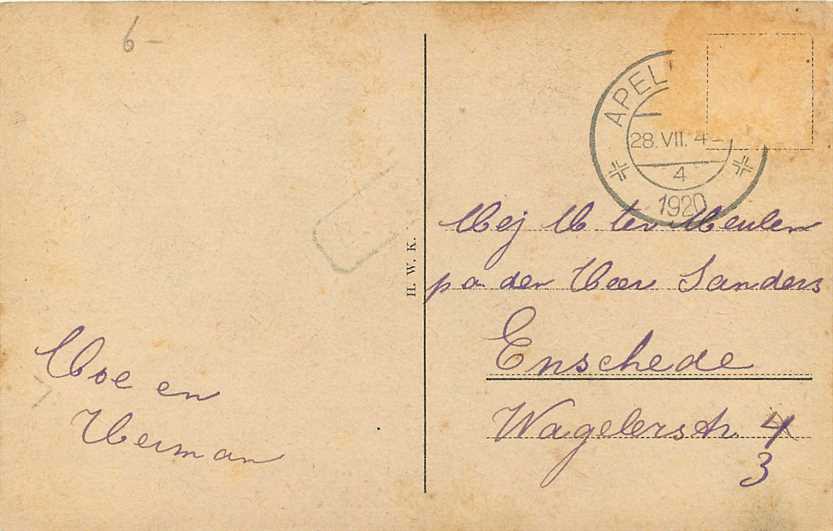 6-
APEL
28. VII. 4-
4
1920
Mej M ter Meulen
p a den Heer Sanders
Enschede
Wagelerstr. 4
3
H. W. K.
Moe en
Herman